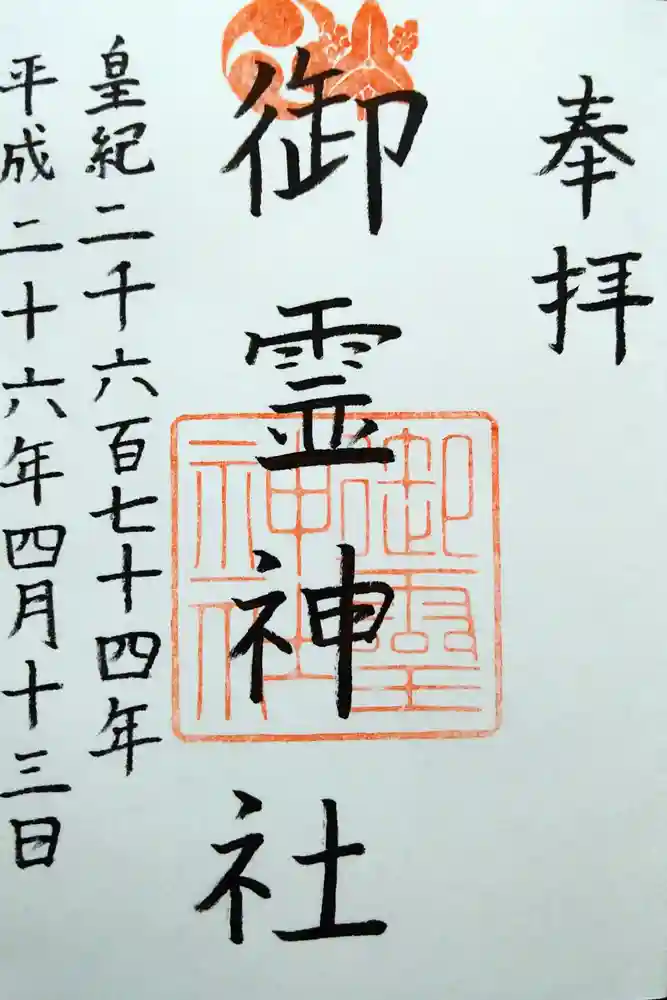 奉拝
御霊神社
御霊神社
皇紀二千六百七十四年
平成二十六年四月十三日